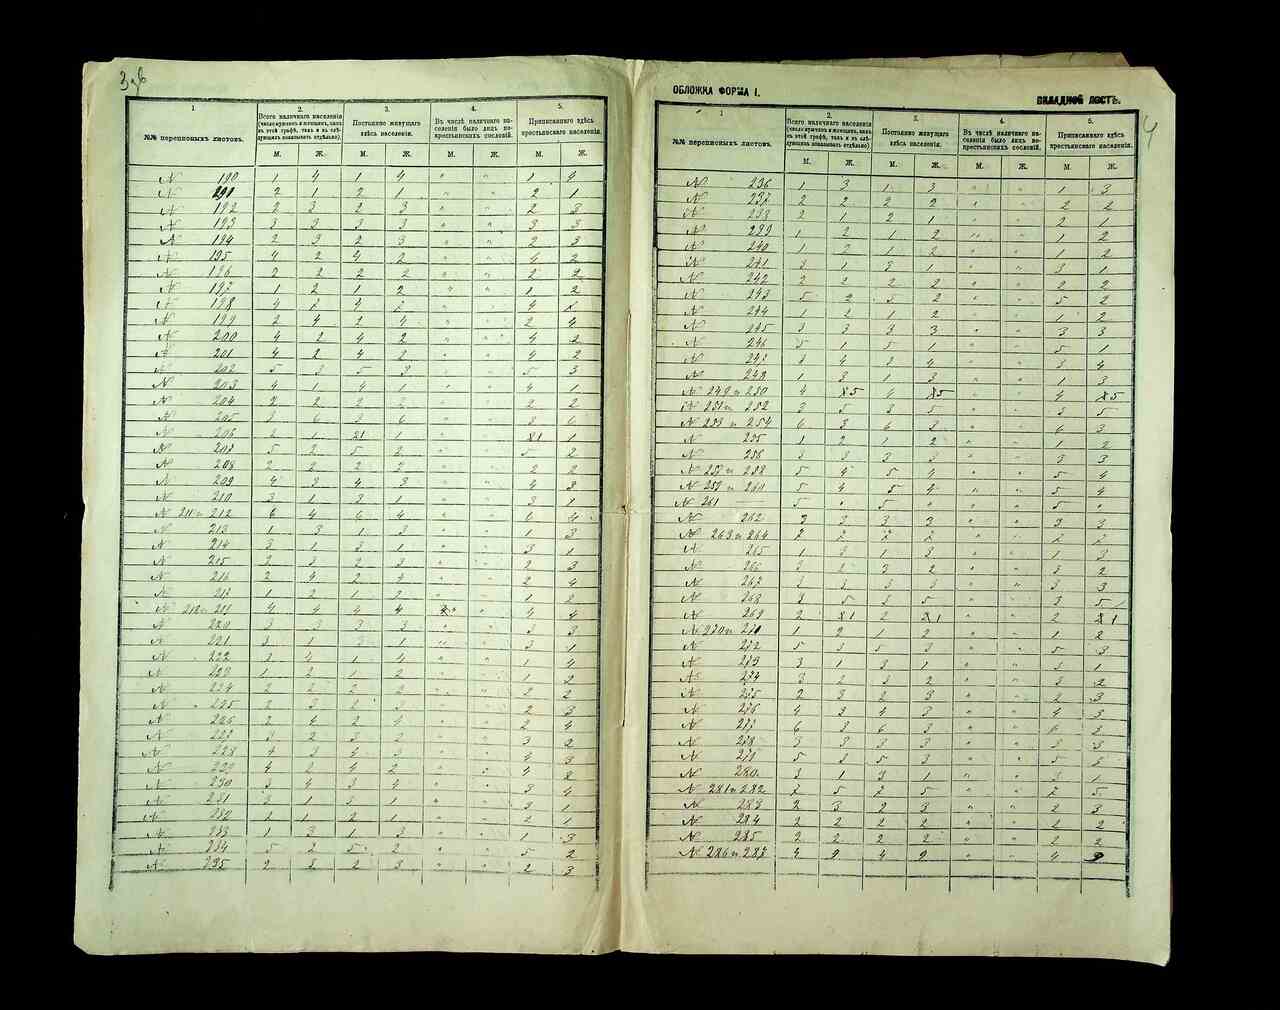 ОБЛОЖКА ФОРМА I.
ВКЛАДНОЙ ЛИСТЪ.
4
1
№№ переписныхъ листовъ.
2.
Всего наличнаго населенія
3.
Постоянно живущаго
здѣсь населенія.
4.
Въ числѣ наличнаго на-
селенія было лицъ не-
крестьянскихъ сословій.
5.
Приписаннаго здѣсь
крестьянскаго населенія.
М. Ж. М. Ж. М. Ж. М. Ж.
№ 190 1 4 1 4 " " 1 4
№ 191 2 1 2 1 " " 2 1
№ 192 2 3 2 3 " " 2 3
№ 193 3 3 3 3 " " 3 3
№ 194 2 3 2 3 " " 2 3
№ 195 4 2 4 2 4 2
№ 196 2 2 2 2 " " 2 2
№ 197 1 2 1 2 " " 1 2
№ 198 4 2 4 2 " " 4
№ 199 2 4 2 4 " " 2 4
№ 200 4 2 4 2 " " 4 2
№ 201 4 2 4 2 " " 4 2
№ 202 5 3 5 3 " " 5 3
№ 203 4 1 4 1 " " 4 1
№ 204 2 2 2 2 " " 2 2
№ 205 3 6 3 6 " " 3 6
№ 206 1 1 1
№ 207 5 2 5 2 " " 5 2
№ 208 2 2 2 2 " " 2 2
№ 209 4 3 4 3 " " 4 3
№ 210 3 1 3 1 " " 3 1
№ 211 и 212 6 4 6 4 " " 6 4
№ 213 1 3 1 3 " " 1 3
№ 214 3 1 3 1 " " 3 1
№ 215 2 3 2 3 " " 2 3
№ 216 2 4 2 4 " " 2 4
№ 217 1 2 1 2 " " 1 2
4 4 4 4 " 4 4
№ 220 3 3 3 3 " " 3 3
№ 221 3 1 3 1 " " 3 1
№ 222 4 4 4
№ 223 1 2 1 2 " " 1 2
№ 224 2 2 2 2 " " 2 2
№ 225 2 3 2 3 " " 2 3
№ 226 2 4 2 4 " " 2 4
№ 227 3 2 3 2 " " 3 2
№ 228 4 3 4 3 " " 4 3
№ 229 4 2 4 2 " " 4 2
№ 230 3 4 3 4 " " 3 4
№ 231 3 1 3 1 " " 3 1
№ 232 2 1 2 1 " " 2 1
№ 233 1 3 1 3 " " 1 3
№ 234 5 2 5 2 " " 5 2
№ 235 2 3 2 3 " " 2 3
1
№№ переписныхъ листовъ.
2.
Всего наличнаго населенія
3.
Постоянно живущаго
здѣсь населенія.
4.
Въ числѣ наличнаго на-
селенія было лицъ не-
крестьянскихъ сословій.
5.
Приписаннаго здѣсь
крестьянскаго населенія.
М. Ж. М. Ж. М. Ж. М. Ж.
№ 236 1 3 1 3 " " 1 3
№ 237 2 2 2 2 " " 2 2
№ 238 2 1 2 1 2 1
№ 239 1 2 1 2 " " 1 2
№ 240 1 2 1 2 " " 1 2
№ 241 3 1 3 1 " " 3 1
№ 242 2 2 2 2 " " 2 2
№ 243 5 2 5 2 " " 5 2
№ 244 1 2 1 2 " " 1 2
№ 245 3 3 3 3 " " 3 3
№ 246 5 1 5 1 " " 5 1
№ 247 3 4 3 4 " " 3 4
№ 248 1 3 1 3 " " 1 3
№ 249 и 250 4 5 4 5 " " 4 5
№ 251 и 252 3 5 3 5 " " 3 5
№ 253 и 254 6 3 6 3 " " 6 3
№ 255 1 2 1 2 " " 1 2
№ 256 3 3 3 3 " " 3 3
№ 257 и 258 5 4 5 4 " " 5 4
№ 259 и 260 5 4 5 4 " " 5 4
№ 261 5 " 5 " " " 5 "
№ 262 3 3 3 3 " " 3 3
№ 263 и 264 2 2 2 2 " " 2 2
№ 265 1 3 1 3 " " 1 3
№ 266 3 2 3 2 " " 3 2
№ 267 3 3 3 3 " " 3 3
№ 268 3 5 3 5 " " 3 5
№ 269 2 1 2 1 " " 2 1
№ 270 и 271 1 2 1 2 " " 1 2
№ 272 5 3 5 3 " " 5 3
№ 273 3 1 3 1 " " 3 1
№ 274 3 2 3 2 " " 3 2
№ 275 2 3 2 3 " " 2 3
№ 276 4 3 4 3 " " 4 3
№ 277 6 3 6 3 " " 6 3
№ 278 3 3 3 3 " " 3 3
№ 279 5 3 5 3 " " 5 3
№ 280 3 1 3 1 " " 3 1
№ 281 и 282 7 5 7 5 " " 7 5
№ 283 2 3 2 3 " " 2 3
№ 284 2 2 2 2 " " 2 2
№ 285 2 2 2 2 " " 2 2
№ 286 и 287 4 9 4 9 " " 4 9